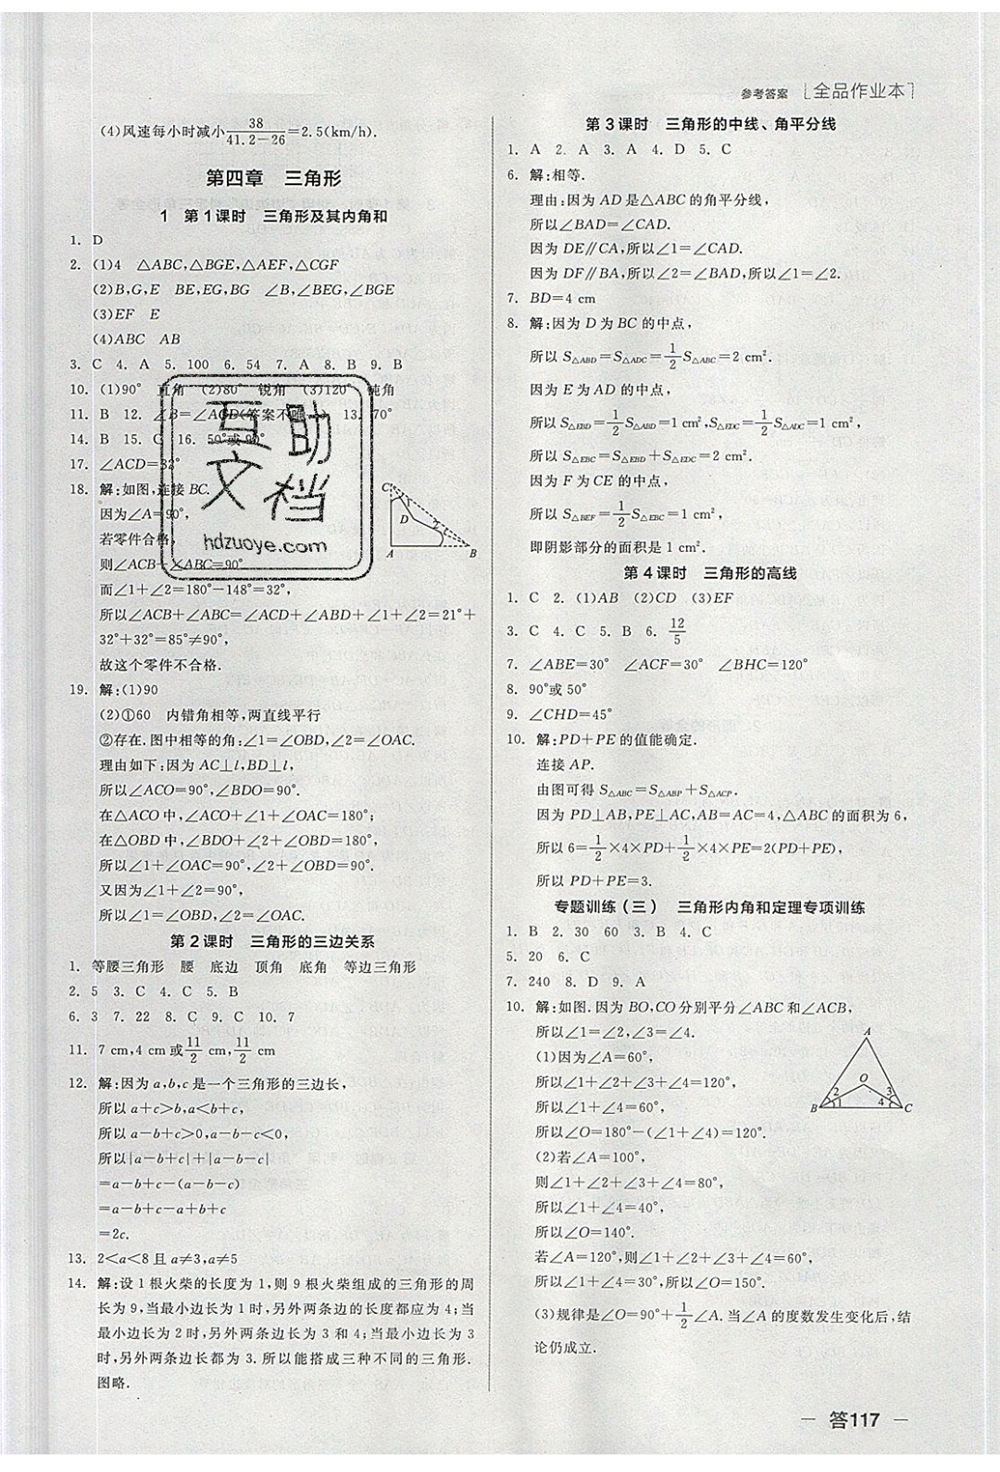 参考答案 全品作业本
(4)风速每小时减小38/(41.2-26)=2.5(km/h).
第四章 三角形
1 第1课时 三角形及其内角和
1. D
2. (1)4 △ABC,△BGE,△AEF,△CGF
(2)B,G,E BE,EG,BG ∠B,∠BEG,∠BGE
(3)EF E
(4)ABC AB
3. C 4. A 5. 100 6. 54 7. A 8. B 9. B
10. (1)90° 直角 (2)80° 锐角 (3)120° 钝角
11. B 12. ∠B=∠ACD(答案不唯一) 13. 70°
14. B 15. C 16. 50°或90°
17. ∠ACD=33°
18. 解:如图,连接BC.
因为∠A=90°,
若零件合格,
则∠ACB+∠ABC=90°.
而∠1+∠2=180°-148°=32°,
所以∠ACB+∠ABC=∠ACD+∠ABD+∠1+∠2=21°+
32°+32°=85°≠90°,
故这个零件不合格.
C
1
D
2
A
B
19. 解:(1)90
(2)①60 内错角相等,两直线平行
②存在.图中相等的角:∠1=∠OBD,∠2=∠OAC.
理由如下:因为AC⊥l,BD⊥l,
所以∠ACO=90°,∠BDO=90°.
在△ACO中,∠ACO+∠1+∠OAC=180°;
在△OBD中,∠BDO+∠2+∠OBD=180°,
所以∠1+∠OAC=90°,∠2+∠OBD=90°.
又因为∠1+∠2=90°,
所以∠1=∠OBD,∠2=∠OAC.
第2课时 三角形的三边关系
1. 等腰三角形 腰 底边 顶角 底角 等边三角形
2. 5 3. C 4. C 5. B
6. 3 7. 22 8. C 9. C 10. 7
11. 7 cm,4 cm或11/2 cm,11/2 cm
12. 解:因为a,b,c是一个三角形的三边长,
所以a+c>b,a<b+c,
所以a-b+c>0,a-b-c<0,
所以|a-b+c|+|a-b-c|
=a-b+c-(a-b-c)
=a-b+c-a+b+c
=2c.
13. 2<a<8且a≠3,a≠5
14. 解:设1根火柴的长度为1,则9根火柴组成的三角形的周
长为9,当最小边长为1时,另外两条边的长度都应为4;当
最小边长为2时,另外两条边长为3和4;当最小边长为3
时,另外两条边长都为3.所以能搭成三种不同的三角形.
图略.
第3课时 三角形的中线、角平分线
1. A 2. A 3. A 4. D 5. C
6. 解:相等.
理由:因为AD是△ABC的角平分线,
所以∠BAD=∠CAD.
因为DE∥CA,所以∠1=∠CAD.
因为DF∥BA,所以∠2=∠BAD,所以∠1=∠2.
7. BD=4 cm
8. 解:因为D为BC的中点,
所以S△ABD=S△ADC=1/2S△ABC=2 cm².
因为E为AD的中点,
所以S△EBD=1/2S△ABD=1 cm²,S△EDC=1/2S△ADC=1 cm²,
所以S△EBC=S△EBD+S△EDC=2 cm².
因为F为CE的中点,
所以S△BEF=1/2S△EBC=1 cm²,
即阴影部分的面积是1 cm².
第4课时 三角形的高线
1. C 2. (1)AB (2)CD (3)EF
3. C 4. C 5. B 6. 12/5
7. ∠ABE=30° ∠ACF=30° ∠BHC=120°
8. 90°或50°
9. ∠CHD=45°
10. 解:PD+PE的值能确定.
连接AP.
由图可得S△ABC=S△ABP+S△ACP.
因为PD⊥AB,PE⊥AC,AB=AC=4,△ABC的面积为6,
所以6=1/2×4×PD+1/2×4×PE=2(PD+PE),
所以PD+PE=3.
专题训练(三) 三角形内角和定理专项训练
1. B 2. 30 60 3. B 4. C
5. 20 6. C
7. 240 8. D 9. A
10. 解:如图.因为BO,CO分别平分∠ABC和∠ACB,
所以∠1=∠2,∠3=∠4.
(1)因为∠A=60°,
所以∠1+∠2+∠3+∠4=120°,
所以∠1+∠4=60°,
所以∠O=180°-(∠1+∠4)=120°.
(2)若∠A=100°,
则∠1+∠2+∠3+∠4=80°,
所以∠1+∠4=40°,
所以∠O=140°.
若∠A=120°,则∠1+∠2+∠3+∠4=60°,
所以∠1+∠4=30°,所以∠O=150°.
(3)规律是∠O=90°+1/2∠A.当∠A的度数发生变化后,结
论仍成立.
A
O
2
3
B
1
4
C
互助
文档
hdzuoye.com
答117